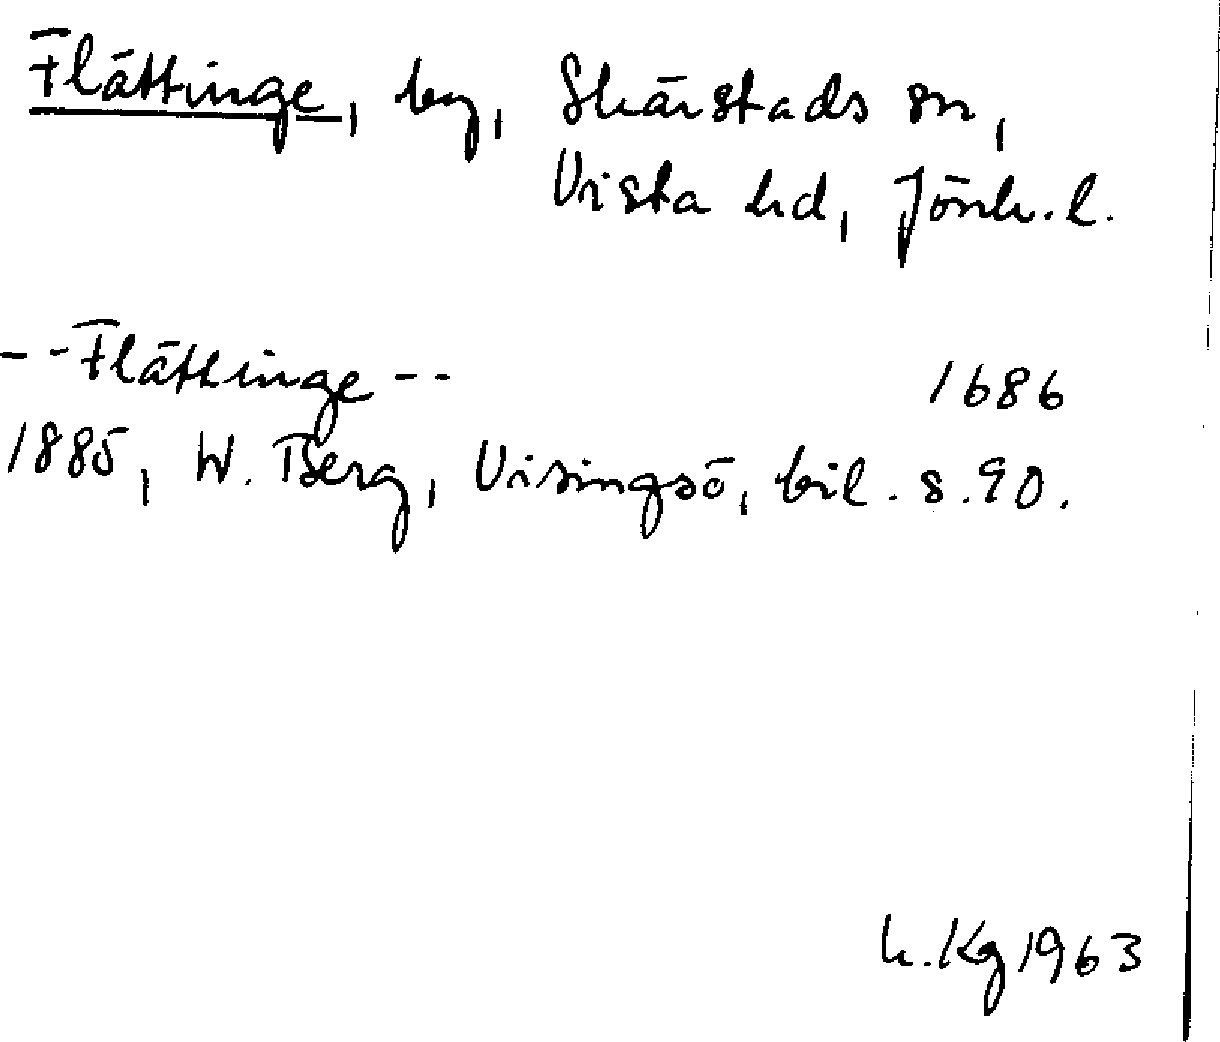 Flättinge, by, Skärstads sn,
Vista hd, Jönk. l.
- - Flättinge - - 1686
1885, W. Berg, Visingsö, bil. s. 90.
K. Kg 1963